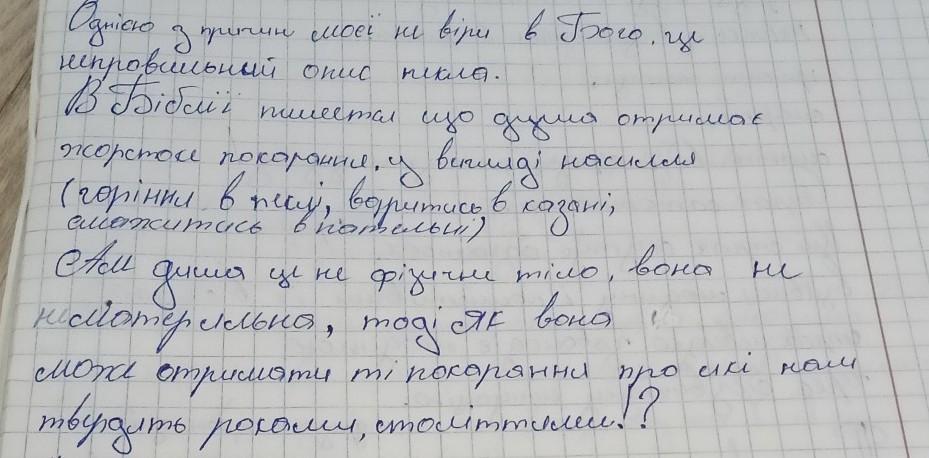 Однією з причин моєї не віри в Бога, це
неправильний опис пекла.
В Біблії пишеться що душа отримає
жорстокі покарання, у вигляді насилля
(горіння в пеклі, варитись в казані,
смажитись в пательні)
Але душа це не фізичне тіло, вона не
матеріальна, тоді як вона
може отримати ті покарання про які нам
твердять роками, століттями!?